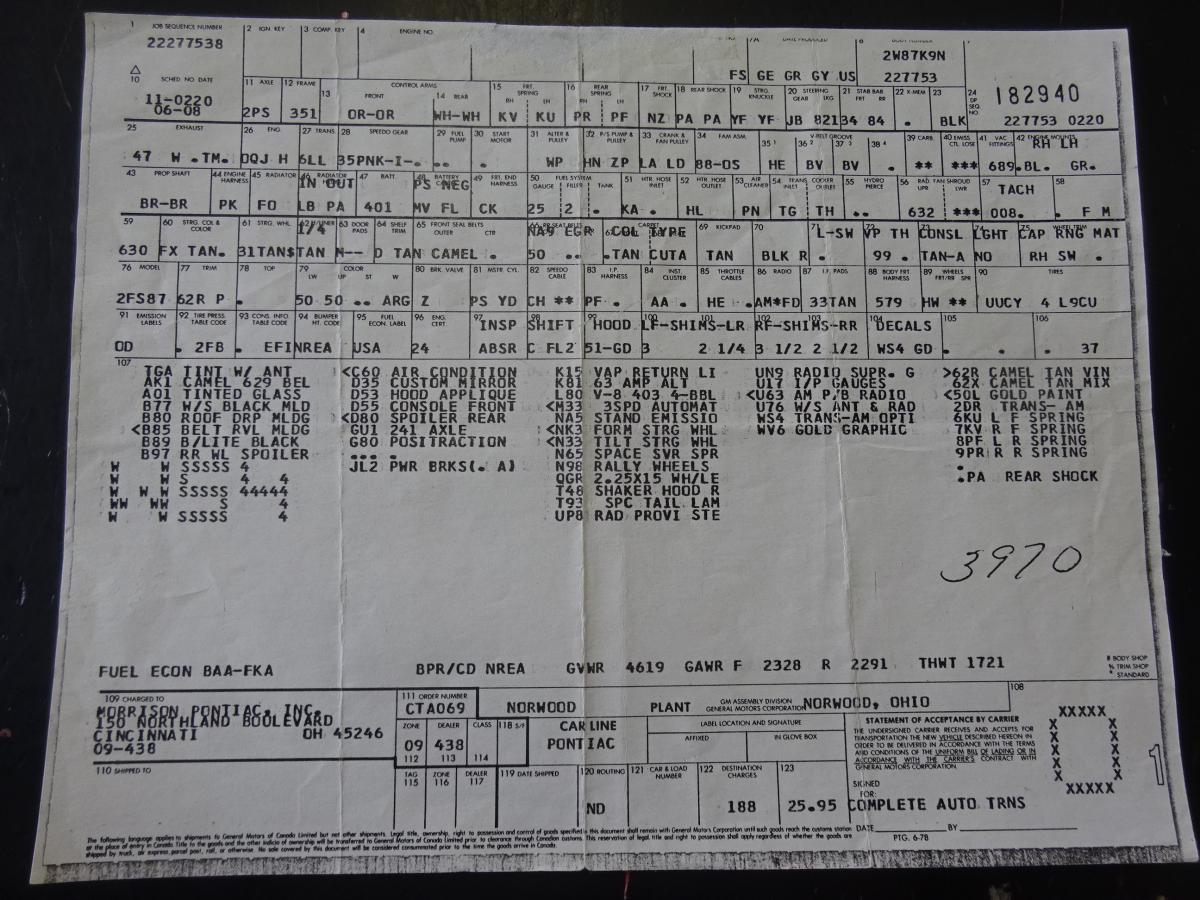 1 JOB SEQUENCE NUMBER 2 IGN KEY 3 COMP. KEY 4 ENGINE NO. 7A DATE PRODUCED 8 BODY NUMBER
22277538 2W87K9N
FS GE GR GY US 227753
10 SCHED NO. DATE 11 AXLE 12 FRAME 13 CONTROL ARMS FRONT 14 REAR 15 FRT. SPRING RH LH 16 REAR SPRING RH LH 17 FRT. SHOCK 18 REAR SHOCK 19 STRG. KNUCKLE 20 STEERING GEAR LKG 21 STAB BAR FRT RR 22 X-MEM 23 24 DP SEQ. NO. 182940
11-0220
06-08 2PS 351 OR-OR WH-WH KV KU PR PF NZ PA PA YF YF JB 82134 84 . BLK 227753 0220
25 EXHAUST 26 ENG. 27 TRANS. 28 SPEEDO GEAR 29 FUEL PUMP 30 START MOTOR 31 ALTER & PULLEY 32 P/S PUMP & PULLEY 33 CRANK & FAN PULLEY 34 FAN ASM. V-BELT GROOVE 35 1 36 2 37 3 38 4 39 CARB. 40 EMISS CTL LOSE 41 VAC FITTINGS 42 ENGINE MOUNTS RH LH
47 W .TM. OQJ H 6LL 35PNK-I-. .. . WP HN ZP LA LD 88-OS HE BV BV . ** *** 689.BL. GR.
43 PROP SHAFT 44 ENGINE HARNESS 45 RADIATOR 46 RADIATOR IN OUT 47 BATT. 48 BATTERY PS NEG 49 FRT. END HARNESS 50 FUEL SYSTEM GAUGE FILLER TANK 51 HTR. HOSE INLET 52 HTR. HOSE OUTLET 53 AIR CLEANER 54 TRANS. COOLER INLET OUTLET 55 HYDRO PIERCE 56 RAD. FAN SHROUD UPR LWR 57 TACH 58
BR-BR PK FO LB PA 401 MV FL CK 25 2 . KA. HL PN TG TH .. 632 *** 008. . F M
59 60 STRG. COL & COLOR 61 STRG. WHL. 62 H/LINER 1/4 63 DOOR PADS 64 SHELF TRIM 65 FRONT SEAL BELTS OUTER CTR 66 RR SEAT BELTS NA9 EGR CARPET COL TYPE 69 KICKPAD 70 L-SW VP TH CONSL LGHT CAP RNG MAT
630 FX TAN. 31TAN$TAN M-- D TAN CAMEL . 50 .. .TAN CUTA TAN BLK R . 99 . TAN-A NO RH SW .
76 MODEL 77 TRIM 78 TOP 79 COLOR LW UP ST W 80 BRK. VALVE 81 MSTR. CYL. 82 SPEEDO CABLE 83 I.P HARNESS 84 INST. CLUSTER 85 THROTTLE CABLES 86 RADIO 87 I.F. PADS 88 BODY FRT HARNESS 89 WHEELS FRT/RR SPR 90 TIRES
2FS87 62R P . 50 50 .. ARG Z PS YD CH ** PF . AA . HE .AM*FD 33TAN 579 HW ** UUCY 4 L9CU
91 EMISSION LABELS 92 TIRE PRESS. TABLE CODE 93 CONS. INFO. TABLE CODE 94 BUMPER MT. CODE 95 FUEL ECON. LABEL 96 ENG. CERT. 97 INSP 98 SHIFT 99 HOOD LF-SHIMS-LR RF-SHIMS-RR 104 DECALS 105 106
OD . 2FB . EFINREA USA 24 ABSR C FL2 51-GD 3 2 1/4 3 1/2 2 1/2 WS4 GD . . 37
107
TGA TINT W/ ANT <C60 AIR CONDITION K15 VAP RETURN LI UN9 RADIO SUPR. G >62R CAMEL TAN VIN
AK1 CAMEL 629 BEL D35 CUSTOM MIRROR K81 63 AMP ALT U17 I/P GAUGES 62X CAMEL TAN MIX
A01 TINTED GLASS D53 HOOD APPLIQUE L80 V-8 403 4-BBL <U63 AM P/B RADIO <50L GOLD PAINT
B77 W/S BLACK MLD D55 CONSOLE FRONT <M33 3SPD AUTOMAT U76 W/S ANT & RAD 2DR TRANS- AM
B80 ROOF DRP MLDG <D80 SPOILER REAR NA5 STAND EMISSIO WS4 TRANS-AM OPTI 6KU L F SPRING
<B85 BELT RVL MLDG GU1 241 AXLE <NK3 FORM STRG WHL WV6 GOLD GRAPHIC 7KV R F SPRING
B89 B/LITE BLACK G80 POSITRACTION <N33 TILT STRG WHL 8PF L R SPRING
B97 RR WL SPOILER .... . N65 SPACE SVR SPR 9PR R R SPRING
W W SSSSS 4 JL2 PWR BRKS(. A) N98 RALLY WHEELS .
W W S 4 4 QGR 2.25X15 WH/LE .PA REAR SHOCK
W W W SSSSS 44444 T48 SHAKER HOOD R
WW WW S 4 T93 SPC TAIL LAM
W W SSSSS 4 UP8 RAD PROVI STE
3970
FUEL ECON BAA-FKA BPR/CD NREA GVWR 4619 GAWR F 2328 R 2291 THWT 1721
# BODY SHOP
% TRIM SHOP
* STANDARD
109 CHARGED TO 111 ORDER NUMBER 108
MORRISON PONTIAC, INC. CTA069 NORWOOD PLANT GM ASSEMBLY DIVISION GENERAL MOTORS CORPORATION NORWOOD, OHIO
150 NORTHLAND BOULEVARD
CINCINNATI OH 45246
09-438
ZONE DEALER CLASS 118 S/F CAR LINE LABEL LOCATION AND SIGNATURE
09 438 PONTIAC AFFIXED IN GLOVE BOX
112 113 114
STATEMENT OF ACCEPTANCE BY CARRIER
THE UNDERSIGNED CARRIER RECEIVES AND ACCEPTS FOR
TRANSPORTATION THE NEW VEHICLE DESCRIBED HEREON IN
ORDER TO BE DELIVERED IN ACCORDANCE WITH THE TERMS
AND CONDITIONS OF THE UNIFORM BILL OF LADING OR IN
ACCORDANCE WITH THE CARRIER'S CONTRACT WITH
GENERAL MOTORS CORPORATION.
XXXXX
X X
X X
X X
X X
X X
XXXXX
1
110 SHIPPED TO TAG 115 ZONE 116 DEALER 117 119 DATE SHIPPED 120 ROUTING 121 CAR & LOAD NUMBER 122 DESTINATION CHARGES 123
ND 188 25.95
SIGNED
FOR: COMPLETE AUTO TRNS
DATE BY
PTG. 6-78
The following language applies to shipments to General Motors of Canada Limited but not other shipments. Legal title, ownership, right to possession and control of goods specified in this document shall remain with General Motors Corporation until such goods reach the customs station
at the place of entry in Canada. Title to the goods and the other indicia of ownership will be transferred to General Motors of Canada Limited prior to clearance through Canadian customs. This reservation of legal title and right to possession shall apply regardless of whether the goods are
shipped by truck, air express parcel post, rail, or otherwise. No sale covered by this document will be considered consummated prior to the time the goods arrive in Canada.